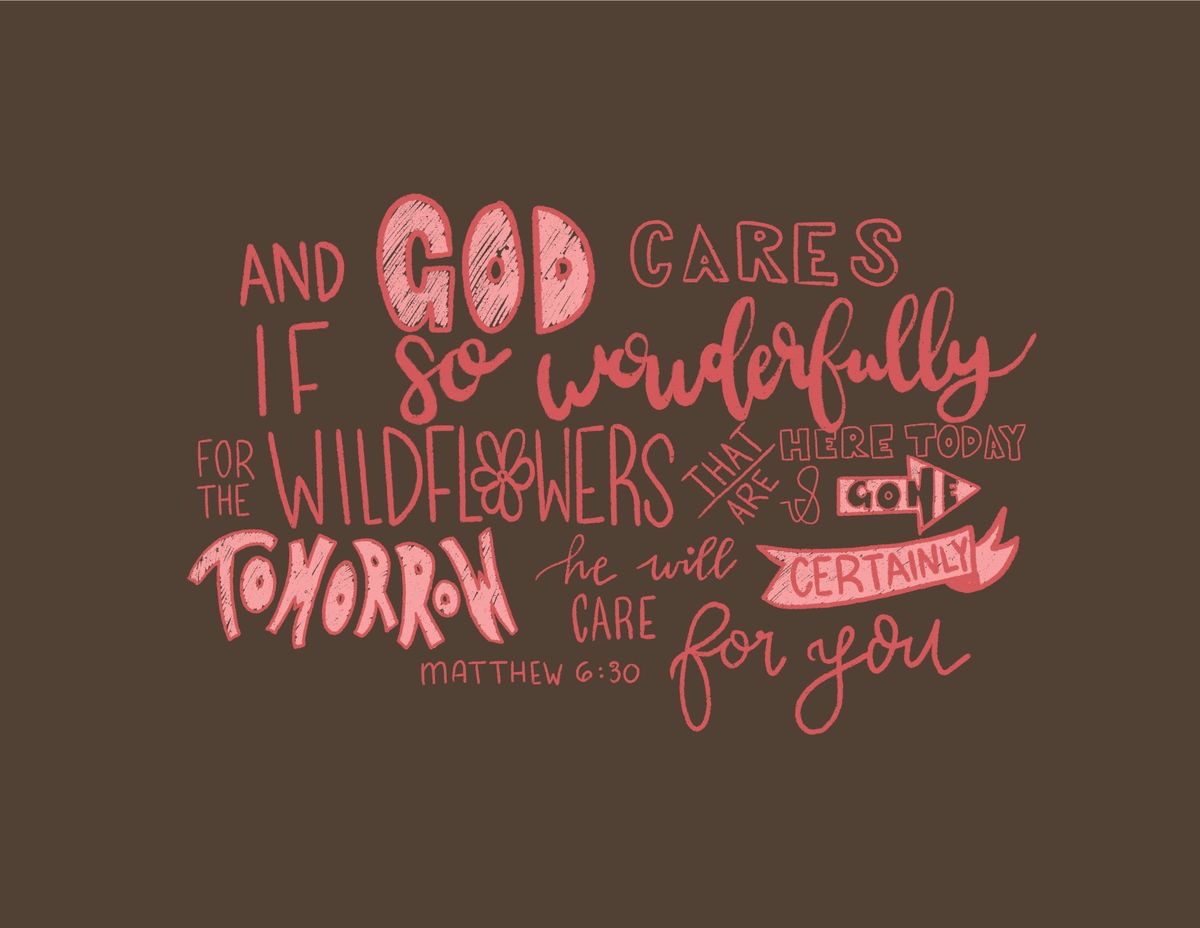 AND GOD CARES
IF so wonderfully
FOR THE WILDFLOWERS THAT ARE HERE TODAY & GONE
TOMORROW he will CERTAINLY
CARE for you
MATTHEW 6:30